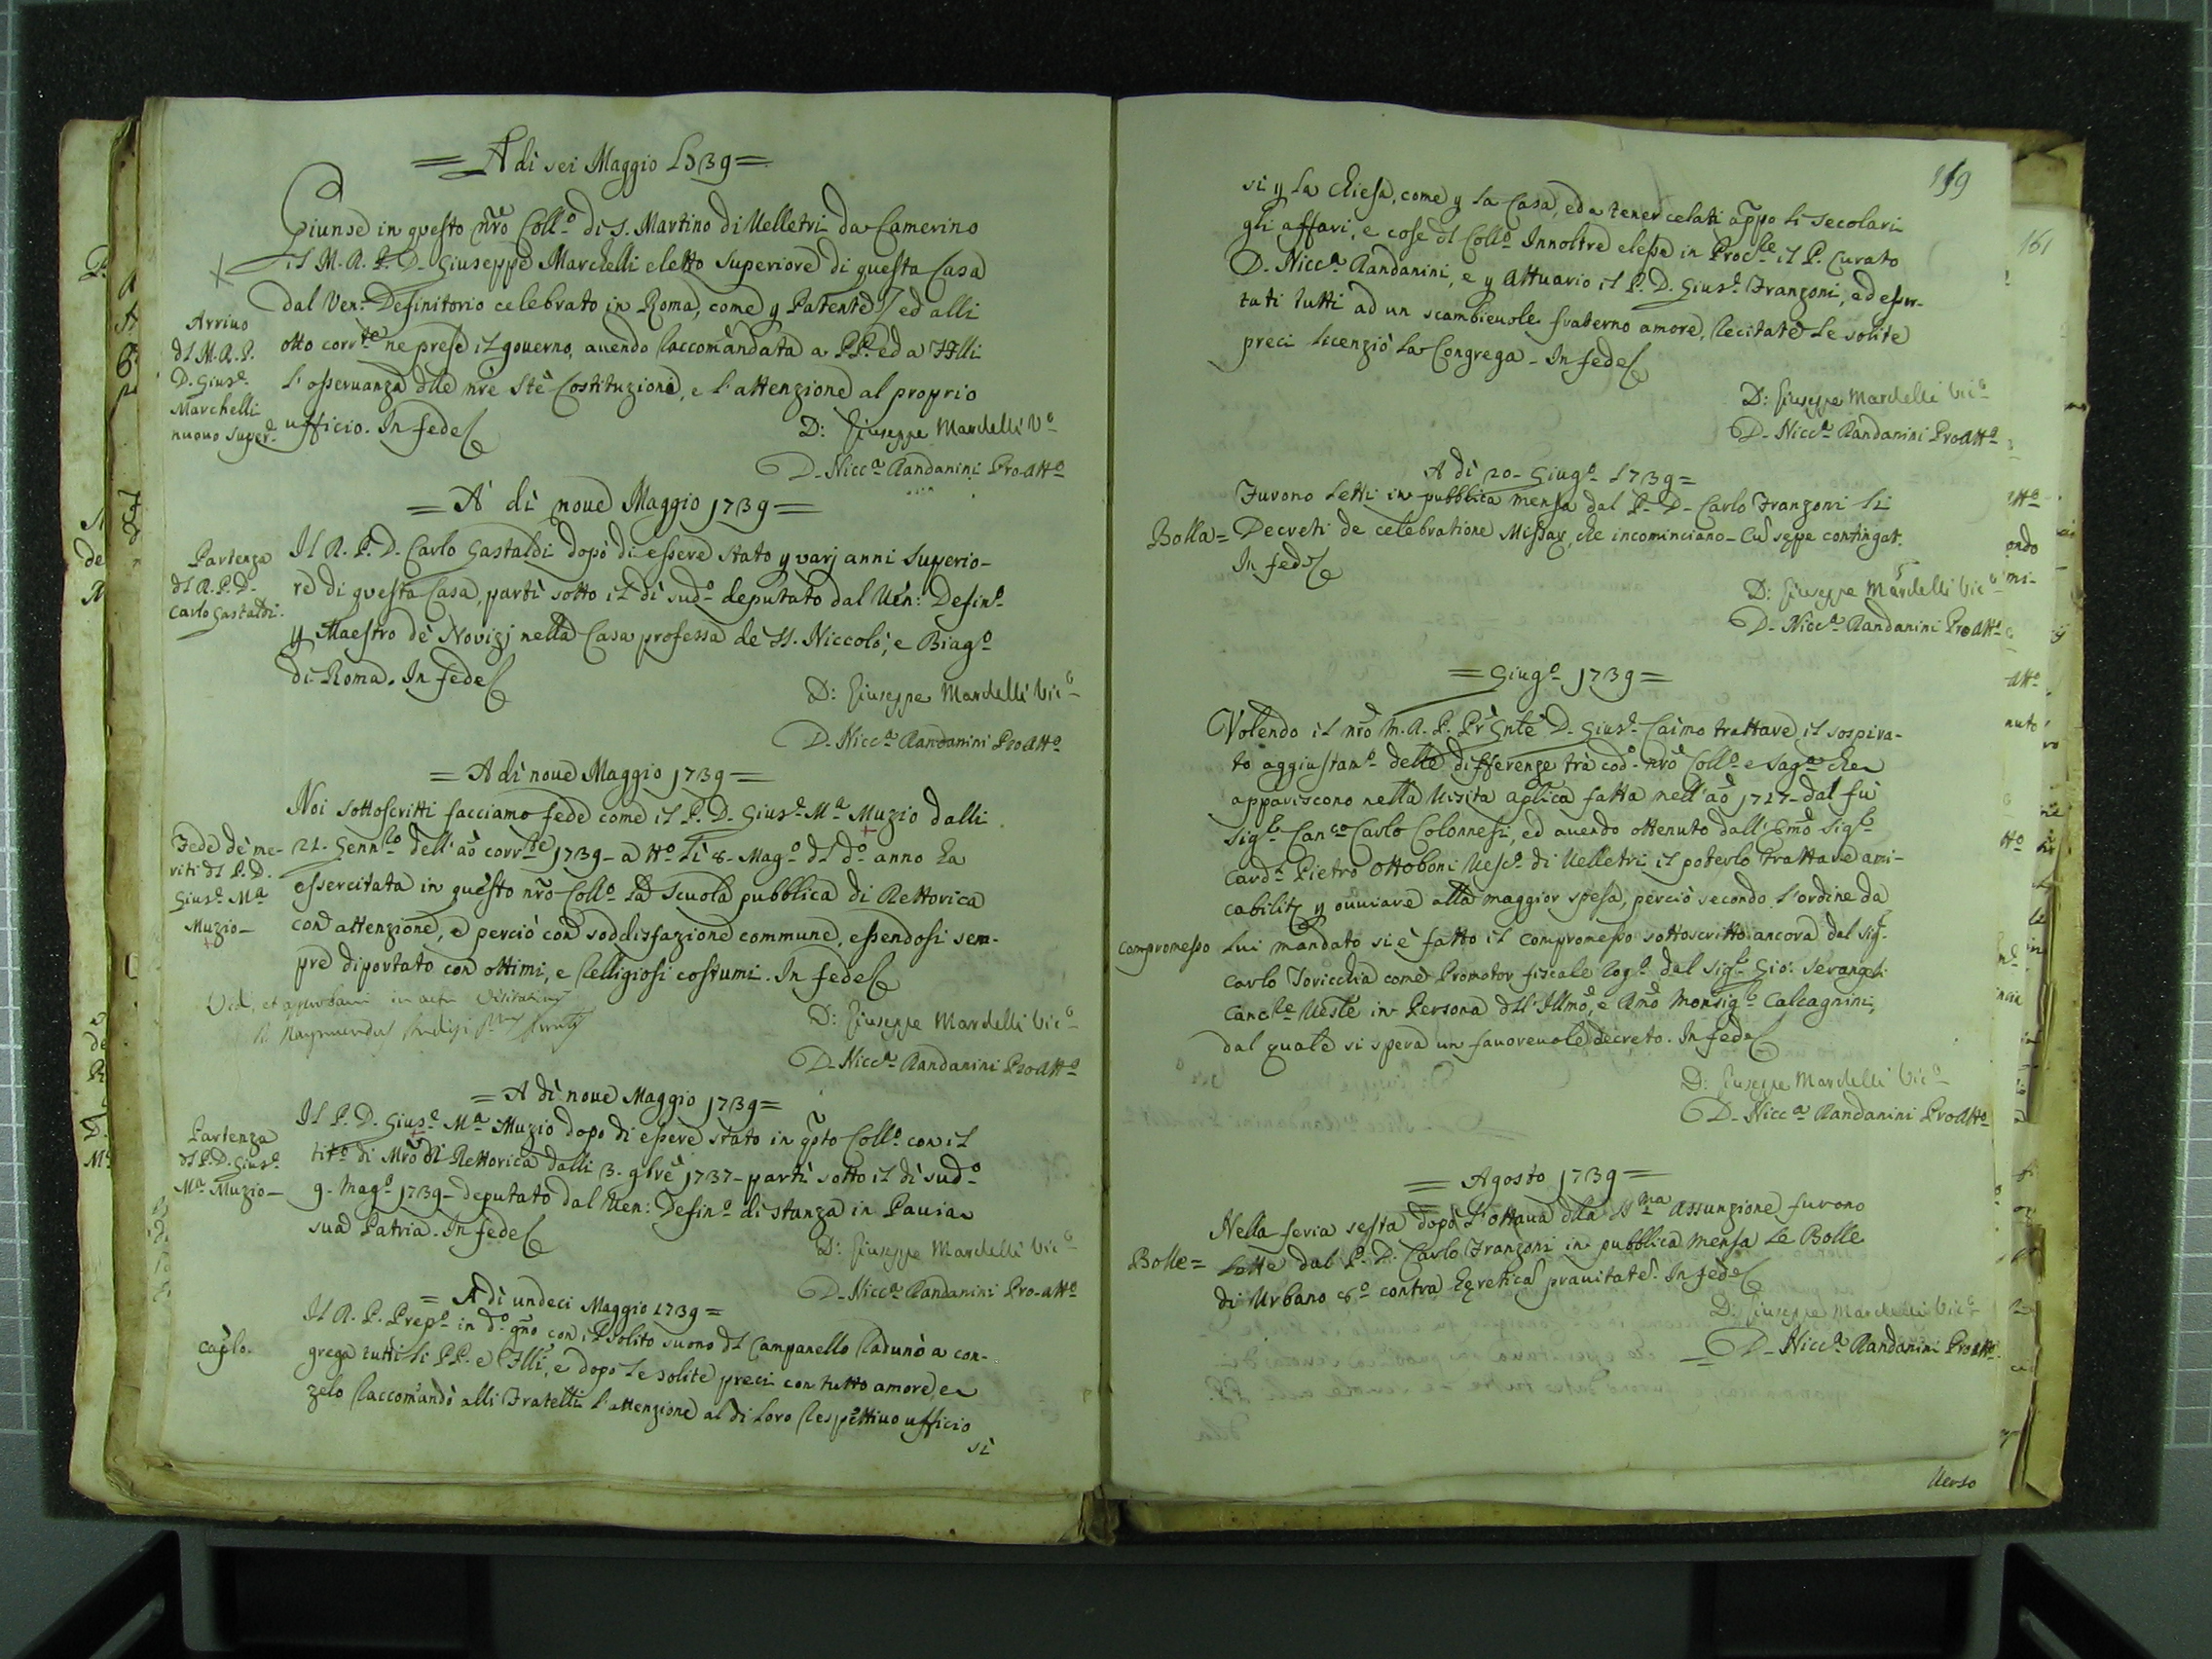 = A di sei Maggio 1739 =
Giunse in questo nrõ Collº di S. Martino di Velletri da Camerino
il M. R. P. D. Giuseppe Marchelli eletto Superiore di questa Casa
dal Ven. Definitorio celebrato in Roma, come p Patente, ed alli
otto corrte ne prese il governo, avendo raccom̃andata a PP. ed a FFlli
l'osservanza dlle nrẽ Stẽ Costituzione, e l'attenzione al proprio
ufficio. In fede
Arrivo
dl M. R. P.
D. Giusẽ
Marchelli
nuovo Superẽ
D: Giuseppe Marchelli Vº
D. Niccª Randanini Pro-Attº
= A di nove Maggio 1739 =
Il R. P. D. Carlo Gastaldi dopò di essere stato p varj anni Superio-
re di questa Casa, partì sotto il dì sudº deputato dal Vèn: Definº
p Maestro de Novizj nella Casa professa de SS. Niccolò, e Biagº
di Roma. In fede
Partenza
dl R. P. D.
Carlo Gastaldi.
D: Giuseppe Marchelli Vicº
D. Niccª Randanini ProAttº
= A di nove Maggio 1739 =
Noi sottoscritti facciamo fede come il P. D. Giusẽ Mª Muzio dalli
21. Gennro dell'aõ corrte 1739 - a ttº li 8. Magº dl dº anno ha
essercitata in questo nrõ Collº la Scuola pubblica di Rettorica
con attenzione, e perciò con soddisfazione commune, essendosi sem-
pre diportato con ottimi, e Relligiosi costumi. In fede
Fede de me-
riti dl P. D.
Giusẽ Mª
Muzio -
Vidi, et approbavi in actu Visitationis
D: Giuseppe Marchelli Vicº
D. Niccª Randanini ProAttº
= A di nove Maggio 1739 =
Il P. D. Giusẽ Mª Muzio dopo di essere stato in qsto Collº con il
titº di Mrõ di Rettorica dalli 3. 9brẽ 1737 - partì sotto il dì sudº
9. Magº 1739 - deputato dal Ven: Definº di stanza in Pavia
sua Patria. In fede
Partenza
dl P. D. Giusẽ
Mª Muzio -
D: Giuseppe Marchelli Vicº
D. Niccª Randanini Pro-Attº
= A di undeci Maggio 1739 =
Il R. P. Prepº in dº gñõ con il solito suono dl Campanello radunò a con-
grega tutti li PP. e Flli, e dopo le solite preci con tutto amore, e
zelo raccom̃andò alli Fratelli l'attenzione al di loro respettivo ufficio
sì
Caplo.
159
sì p la Chiesa, come p la Casa, ed a tener celati appo li secolari
gli affari, e cose dl Collº. Innoltre elesse in Procle il P. Curato
D. Niccª Randanini, e p Attuario il P. D. Giusẽ Franzoni, ed esor-
tati tutti ad un scambievole fraterno amore, recitate le solite
preci licenziò la Congrega - In fede
D: Giuseppe Marchelli Vicº
D. Niccª Randanini ProAttº
A di 20 - Giugº 1739 =
Furono letti in pubblica mensa dal P. D. Carlo Franzoni li
Decreti de celebratione Missar, che incominciano - Cũ sepe contingat.
In fede
Bolla =
D: Giuseppe Marchelli Vicº
D. Niccª Randanini ProAttº
= Giugº 1739 =
Volendo il nrõ M. R. P. Pr Gnlẽ D. Giusẽ Caimo trattare il sospira-
to aggiustamº delle differenze trà codº nrõ Collº e Sagª che
appariscono nella Visita aplica fatta nell'aõ 1727 - dal fù
Sigre Canco Carlo Colonnesi, ed avendo ottenuto dall'Emõ Sigre
Cardl Pietro Ottoboni Vescº di Velletri il poterlo trattare ami-
cabilit p ovviare alla maggior spesa, perciò secondo l'ordine da
lui mandato si è fatto il compromesso sottoscritto ancora dal Sigr
Carlo Toricchia come Promotor fiscale
dal Sigr Gio: Serangeli
Canclre
in Persona dll'Illmõ, e Rmõ Monsigre Calcagnini,
dal quale si spera un favorevole decreto. In fede
Compromesso
D: Giuseppe Marchelli Vicº
D. Niccª Randanini ProAttº
= Agosto 1739 =
Nella feria sesta dopò l'ottava dlla SSma Assunzione furono
lette dal P. D. Carlo Franzoni in pubblica mensa le Bolle
di Urbano 8º contra Heretica pravitatẽ. In fede
Bolle =
D: Giuseppe Marchelli Vicº
D. Niccª Randanini ProAttº
Verso
161